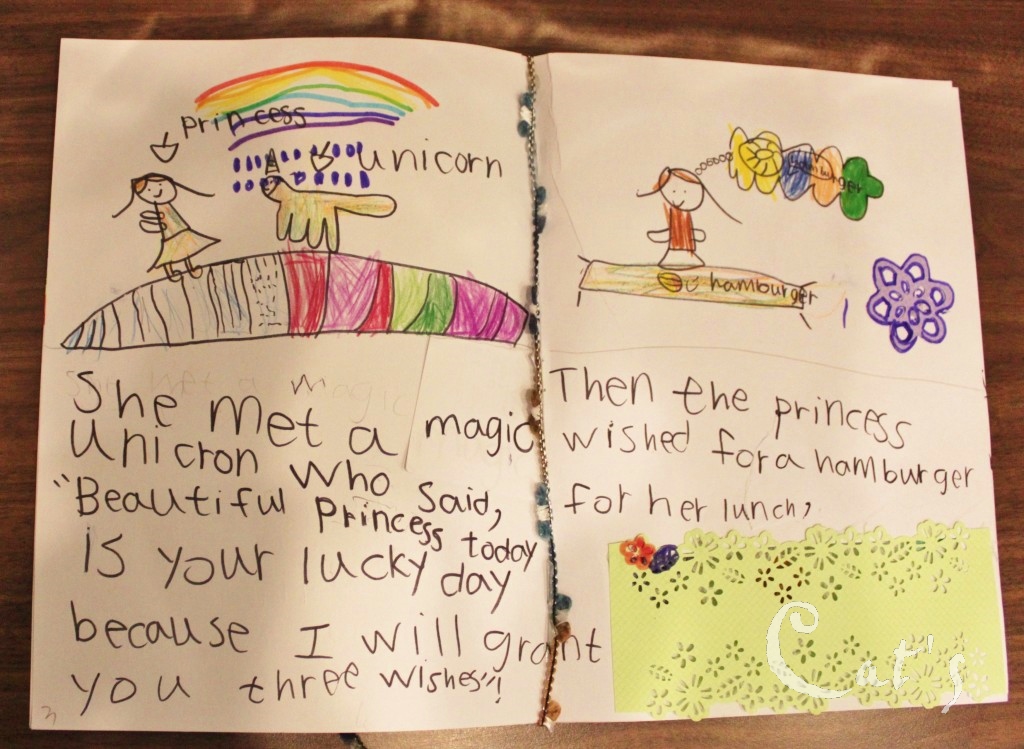 princess
unicorn
She met a magic
unicron who said,
"Beautiful princess today
is your lucky day
because I will grant
you three wishes"!
3
hamburger
hamburger
Then the princess
wished for a hamburger
for her lunch,
Cat's